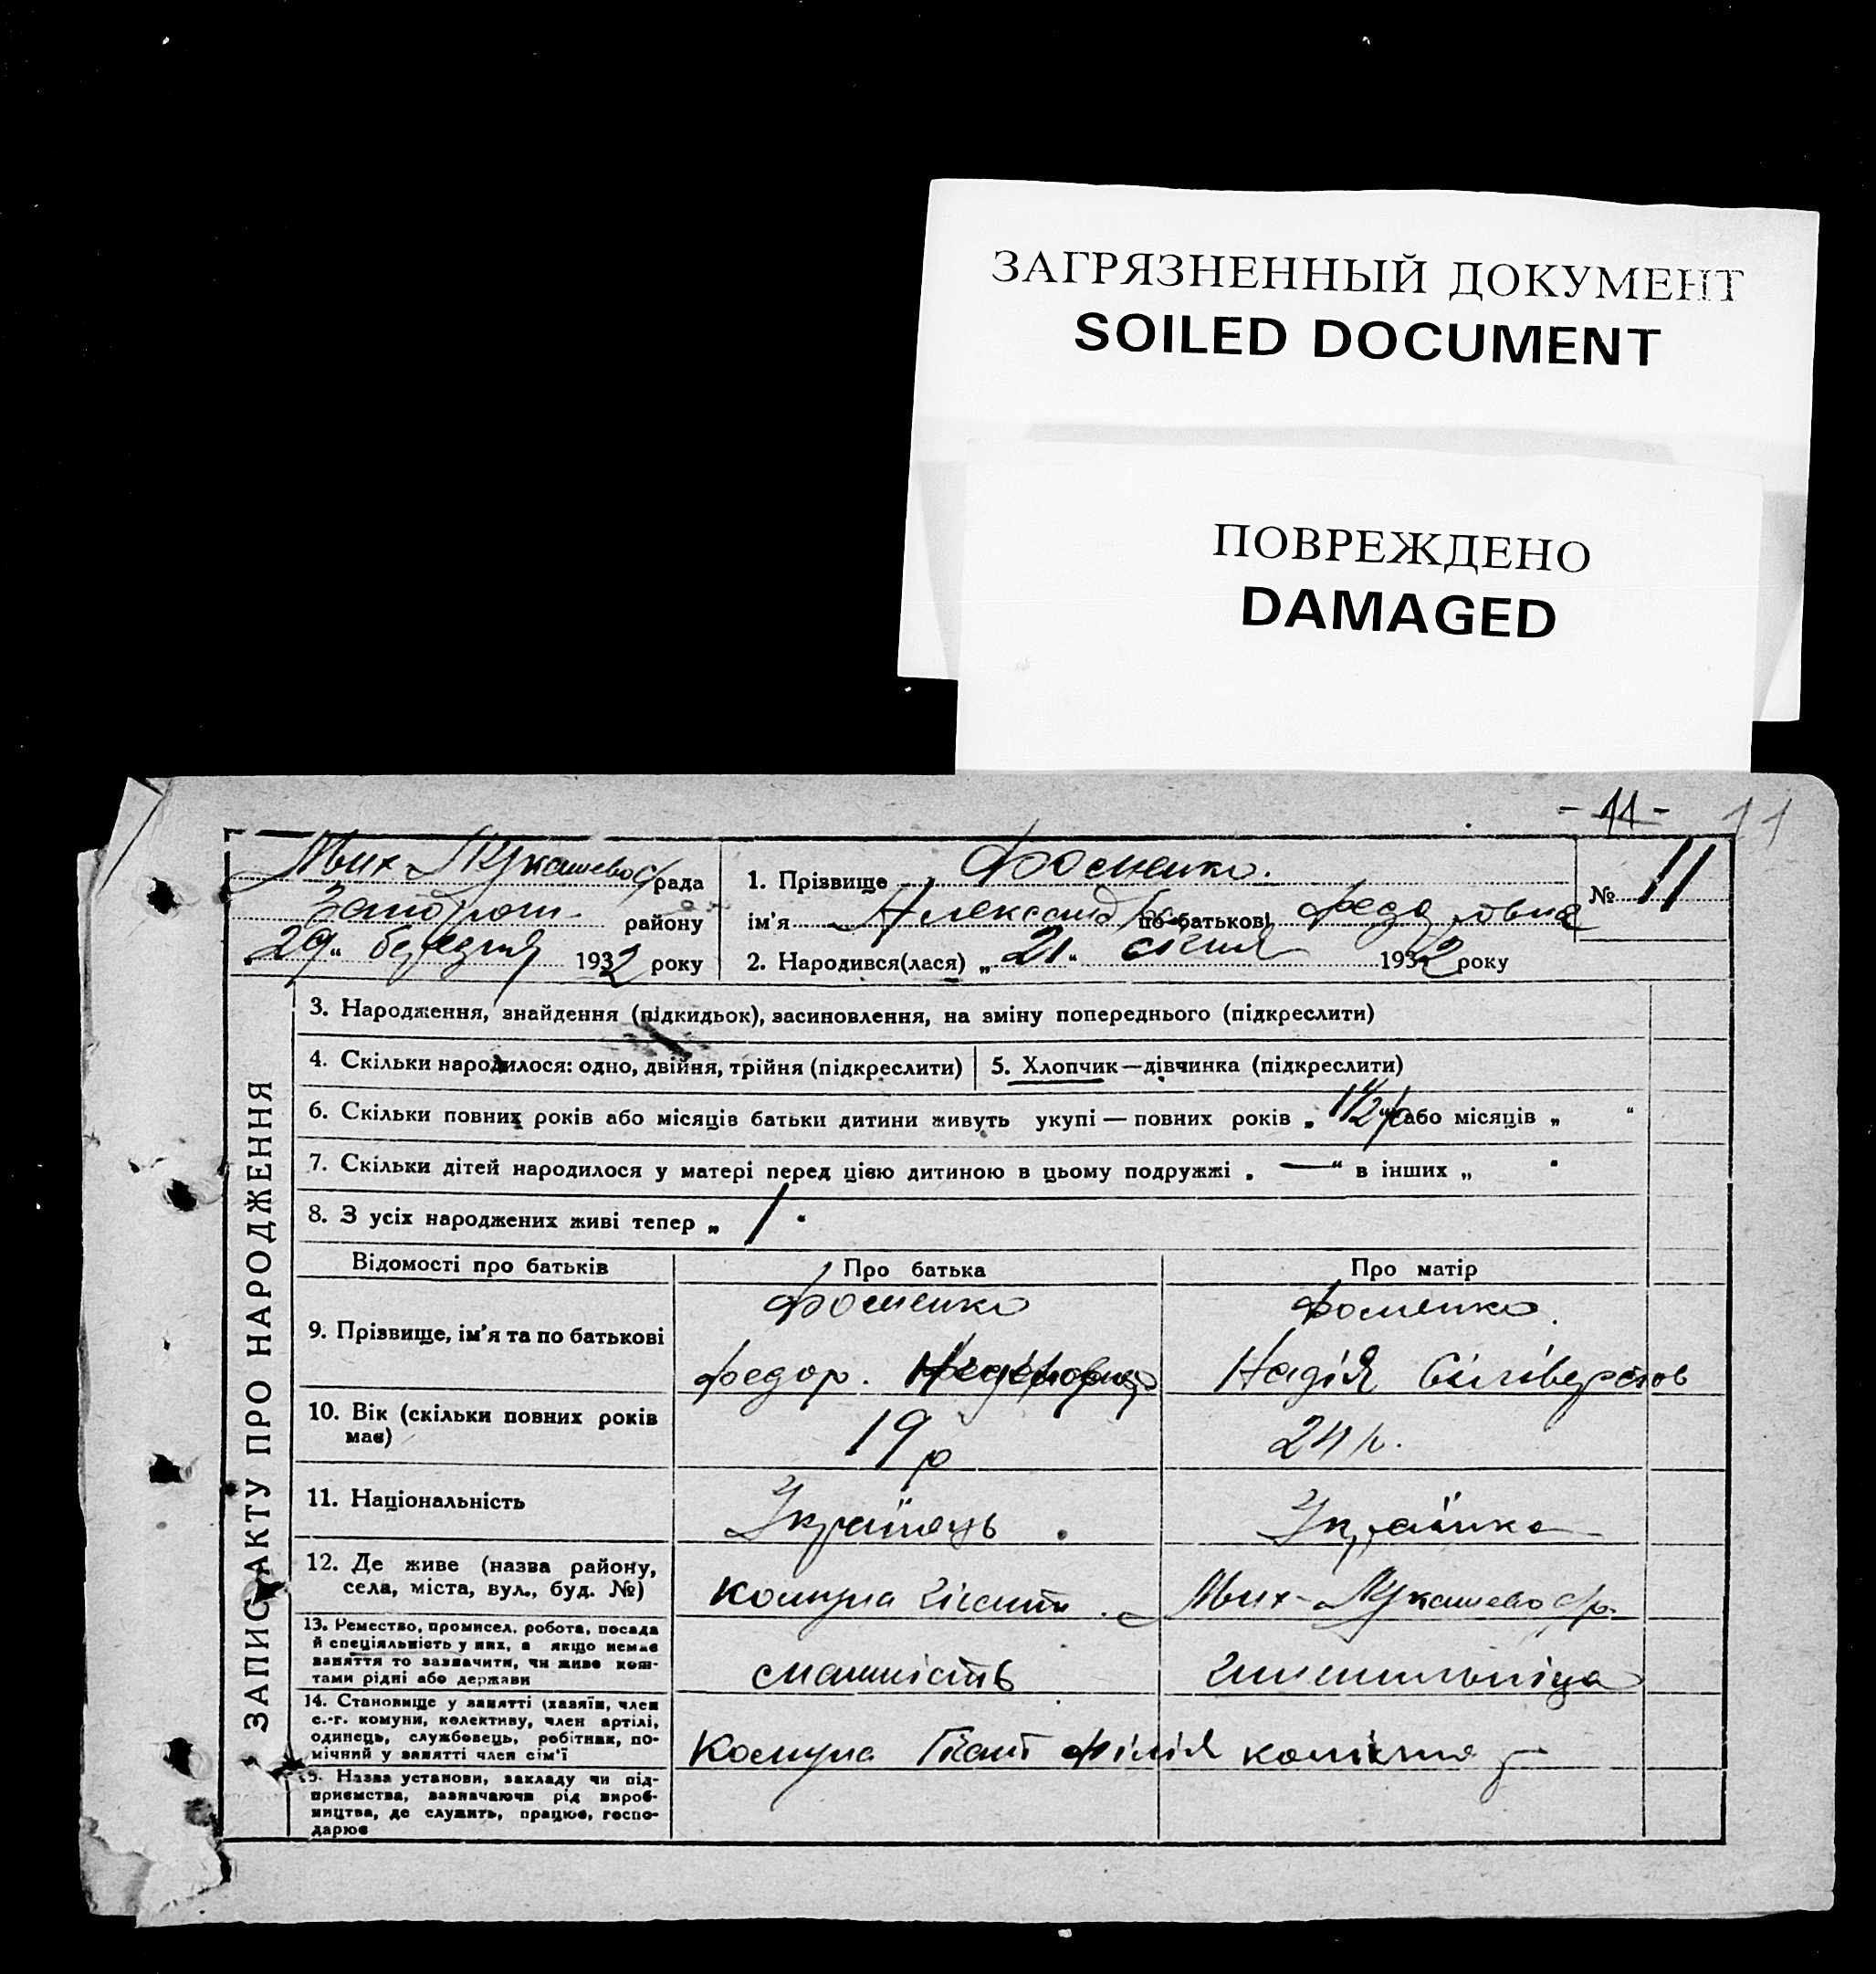 ЗАГРЯЗНЕННЫЙ ДОКУМЕНТ
SOILED DOCUMENT
ПОВРЕЖДЕНО
DAMAGED
- 11 - 11
Мих-Лукашево с/рада
Запорож. району
„29“ березня 1932 року
1. Прізвище Фоменко.
ім'я Александ по-батькові Федоровна
№ 11
2. Народився(лася) „21“ січня 1932 року
ЗАПИС АКТУ ПРО НАРОДЖЕННЯ
3. Народження, знайдення (підкидьок), засиновлення, на зміну попереднього (підкреслити)
4. Скільки народилося: одно, двійня, трійня (підкреслити)
5. Хлопчик—дівчинка (підкреслити)
6. Скільки повних років або місяців батьки дитини живуть укупі — повних років „ 1 1/2 або місяців „ “
7. Скільки дітей народилося у матері перед цією дитиною в цьому подружжі „ — “ в інших „ “
8. З усіх народжених живі тепер „ 1 “
Відомості про батьків Про батька Про матір
9. Прізвище, ім'я та по батькові
Фоменко Фоменко.
Федор. Надія Сіліверстов
10. Вік (скільки повних років має)
19 р 24 р.
11. Національність
Українець Українка
12. Де живе (назва району, села, міста, вул., буд. №)
Комуна Гігант. Мих-Лукашево с/р.
13. Ремество, промисел, робота, посада й спеціяльність у них, а якщо немає заняття то зазначити, чи живе коштами рідні або держави
14. Становище у занятті (хазяїн, член с.-г. комуни, колективу, член артілі, одинець, службовець, робітник, помічний у занятті член сім'ї
Комуна Гігант Філія
15. Назва установи, закладу чи підприємства, зазначаючи рід виробництва, де служить, працює, господарює